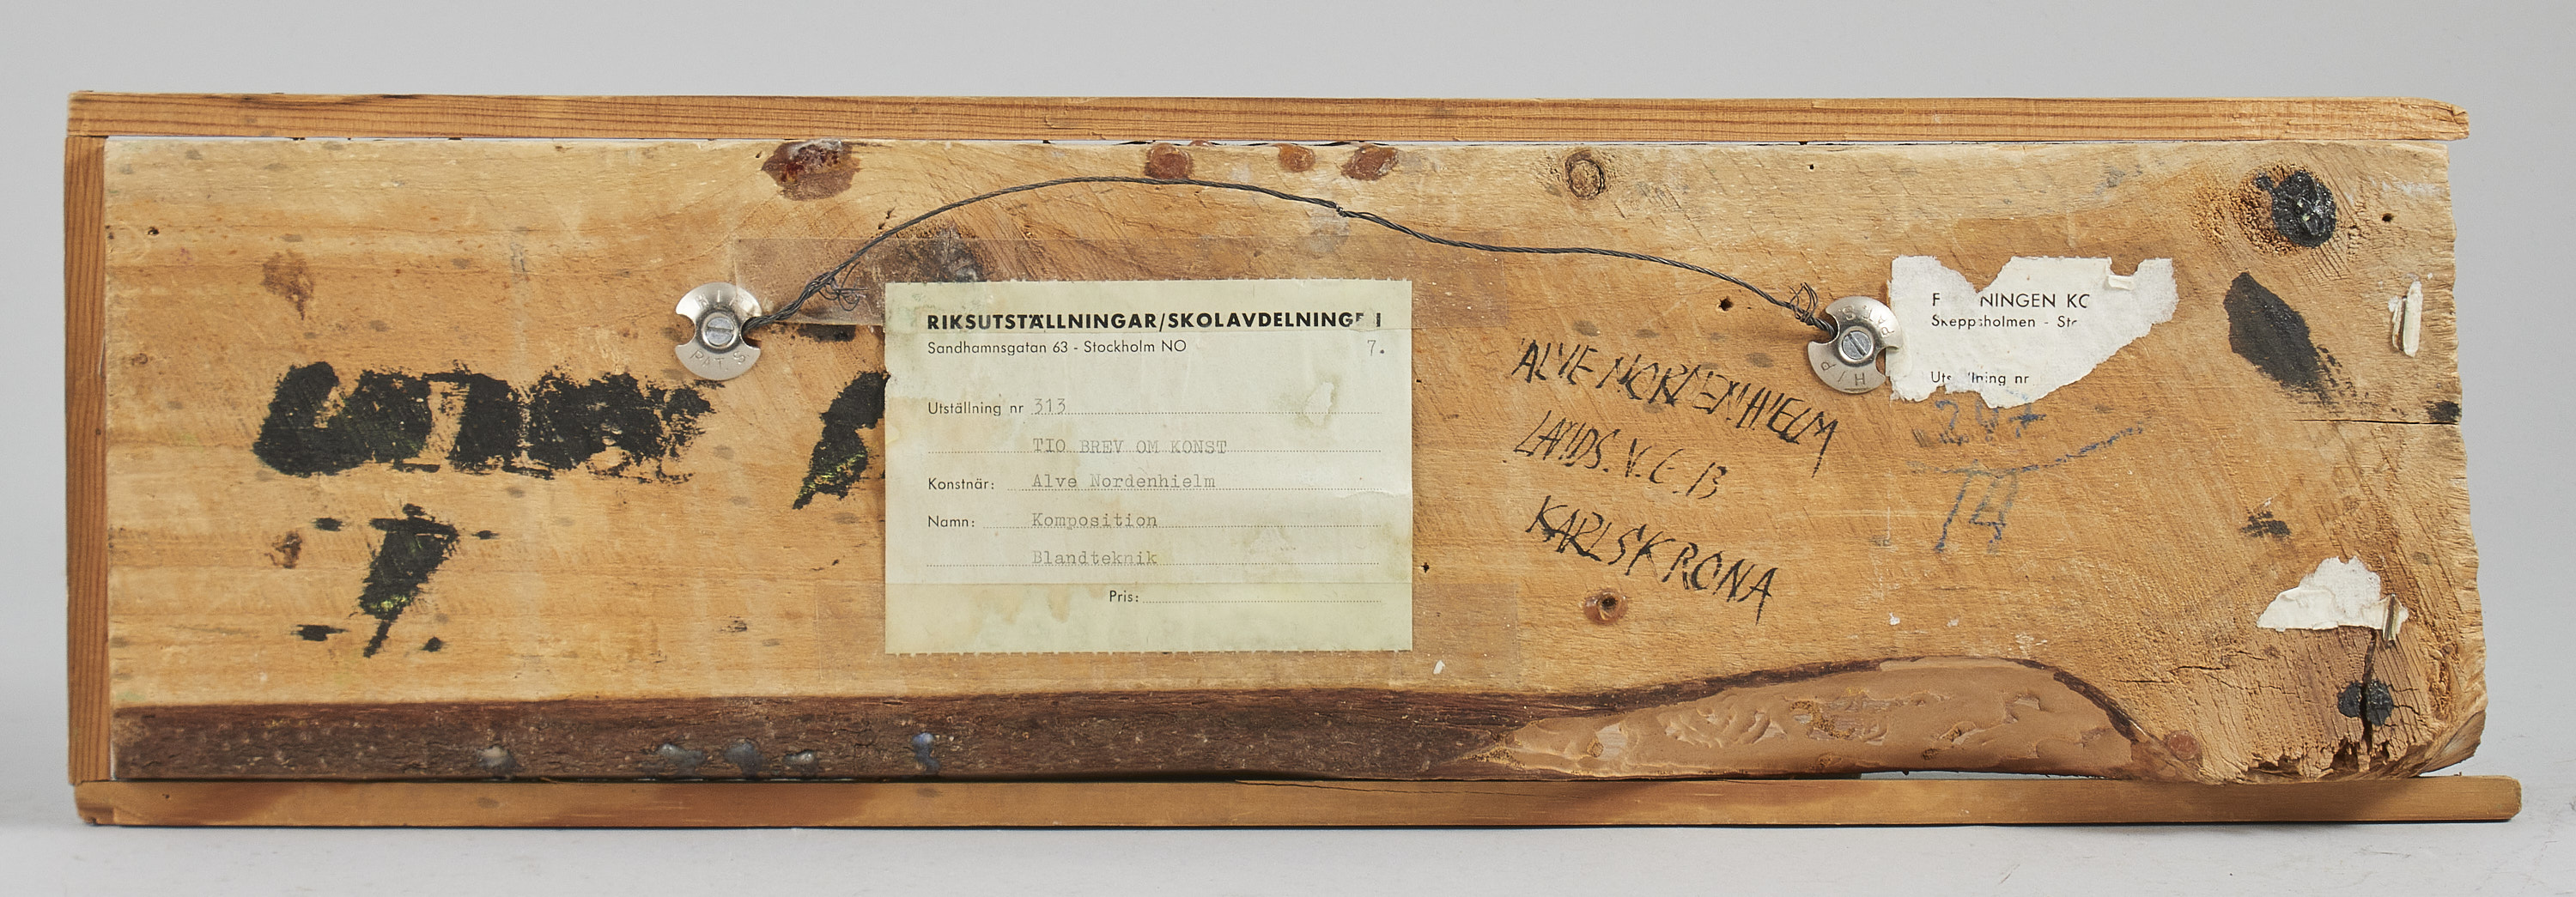 RIKSUTSTÄLLNINGAR/SKOLAVDELNING
Sandhamnsgatan 63 - Stockholm NO 7.
Utställning nr 313
TIO BREV OM KONST
Konstnär: Alve Nordenhielm
Namn: Komposition
Blandteknik
Pris:
ALVE NORDENHIELM
LANDS.V. 6. B
KARLSKRONA
NINGEN KO
Skeppsholmen - Sto
Utställning nr
PATS
HIP PATS